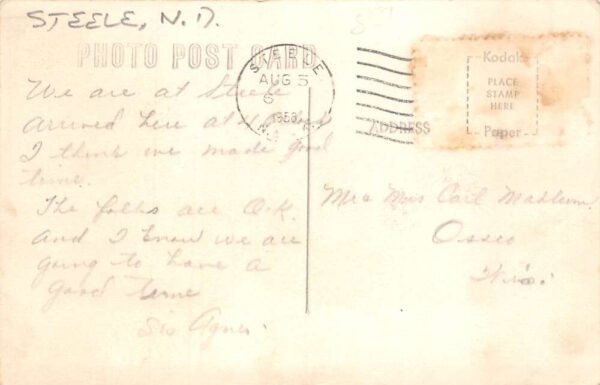 STEELE, N.D.
PHOTO POST CARD
STEELE
AUG 3
6
1950
N.
Kodak
PLACE
STAMP
HERE
Paper
ADDRESS
We are at Steele
arrived here at
I think we made good
time.
The folks are O.K.
and I know we are
going to have a
good time
Sis Agnes.
Mr & Mrs Carl
Osseo
Wis.